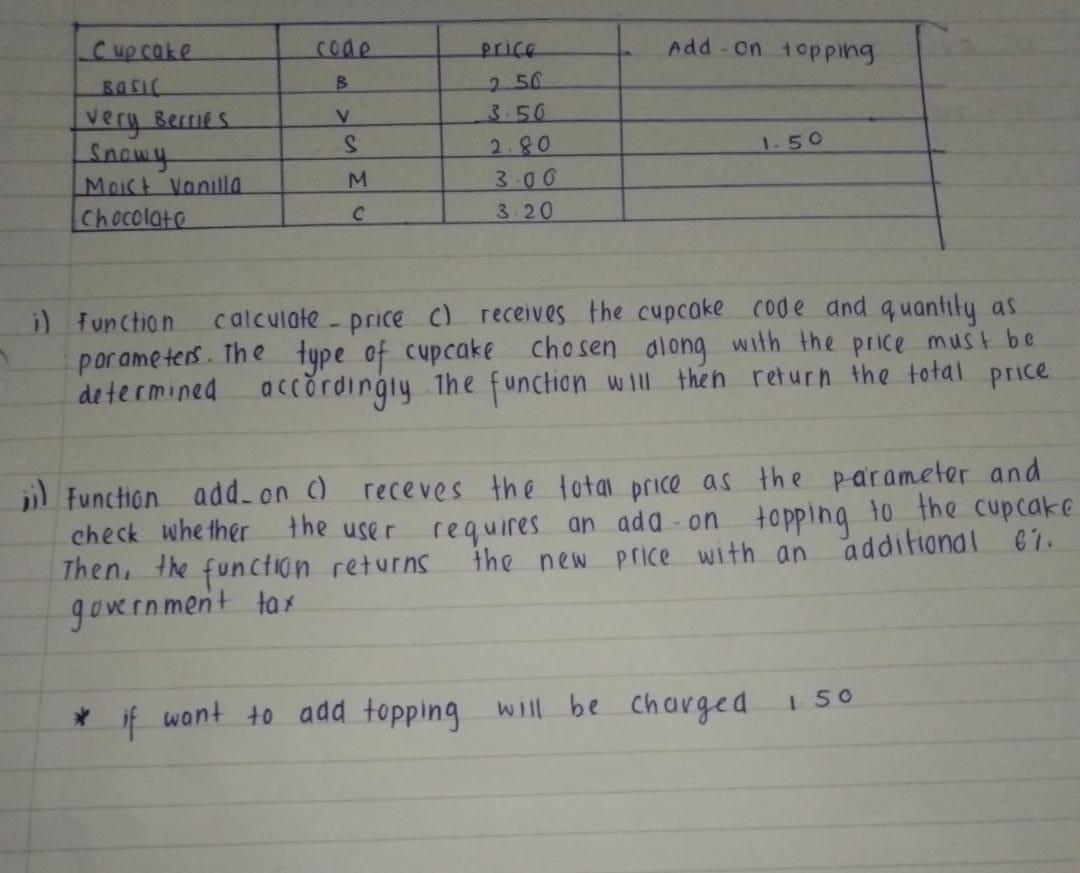 Cupcake code price Add-on topping
Basic B 2.50
Very Berries V 3.50
Snowy S 2.80 1.50
Moist Vanilla M 3.00
Chocolate C 3.20
i) Function calculate-price () receives the cupcake code and quantity as
parameters. The type of cupcake chosen along with the price must be
determined accordingly. The function will then return the total price
ii) Function add-on () receves the total price as the parameter and
check whether the user requires an add-on topping to the cupcake
Then, the function returns the new price with an additional 6%.
government tax
* if want to add topping will be charged 1.50